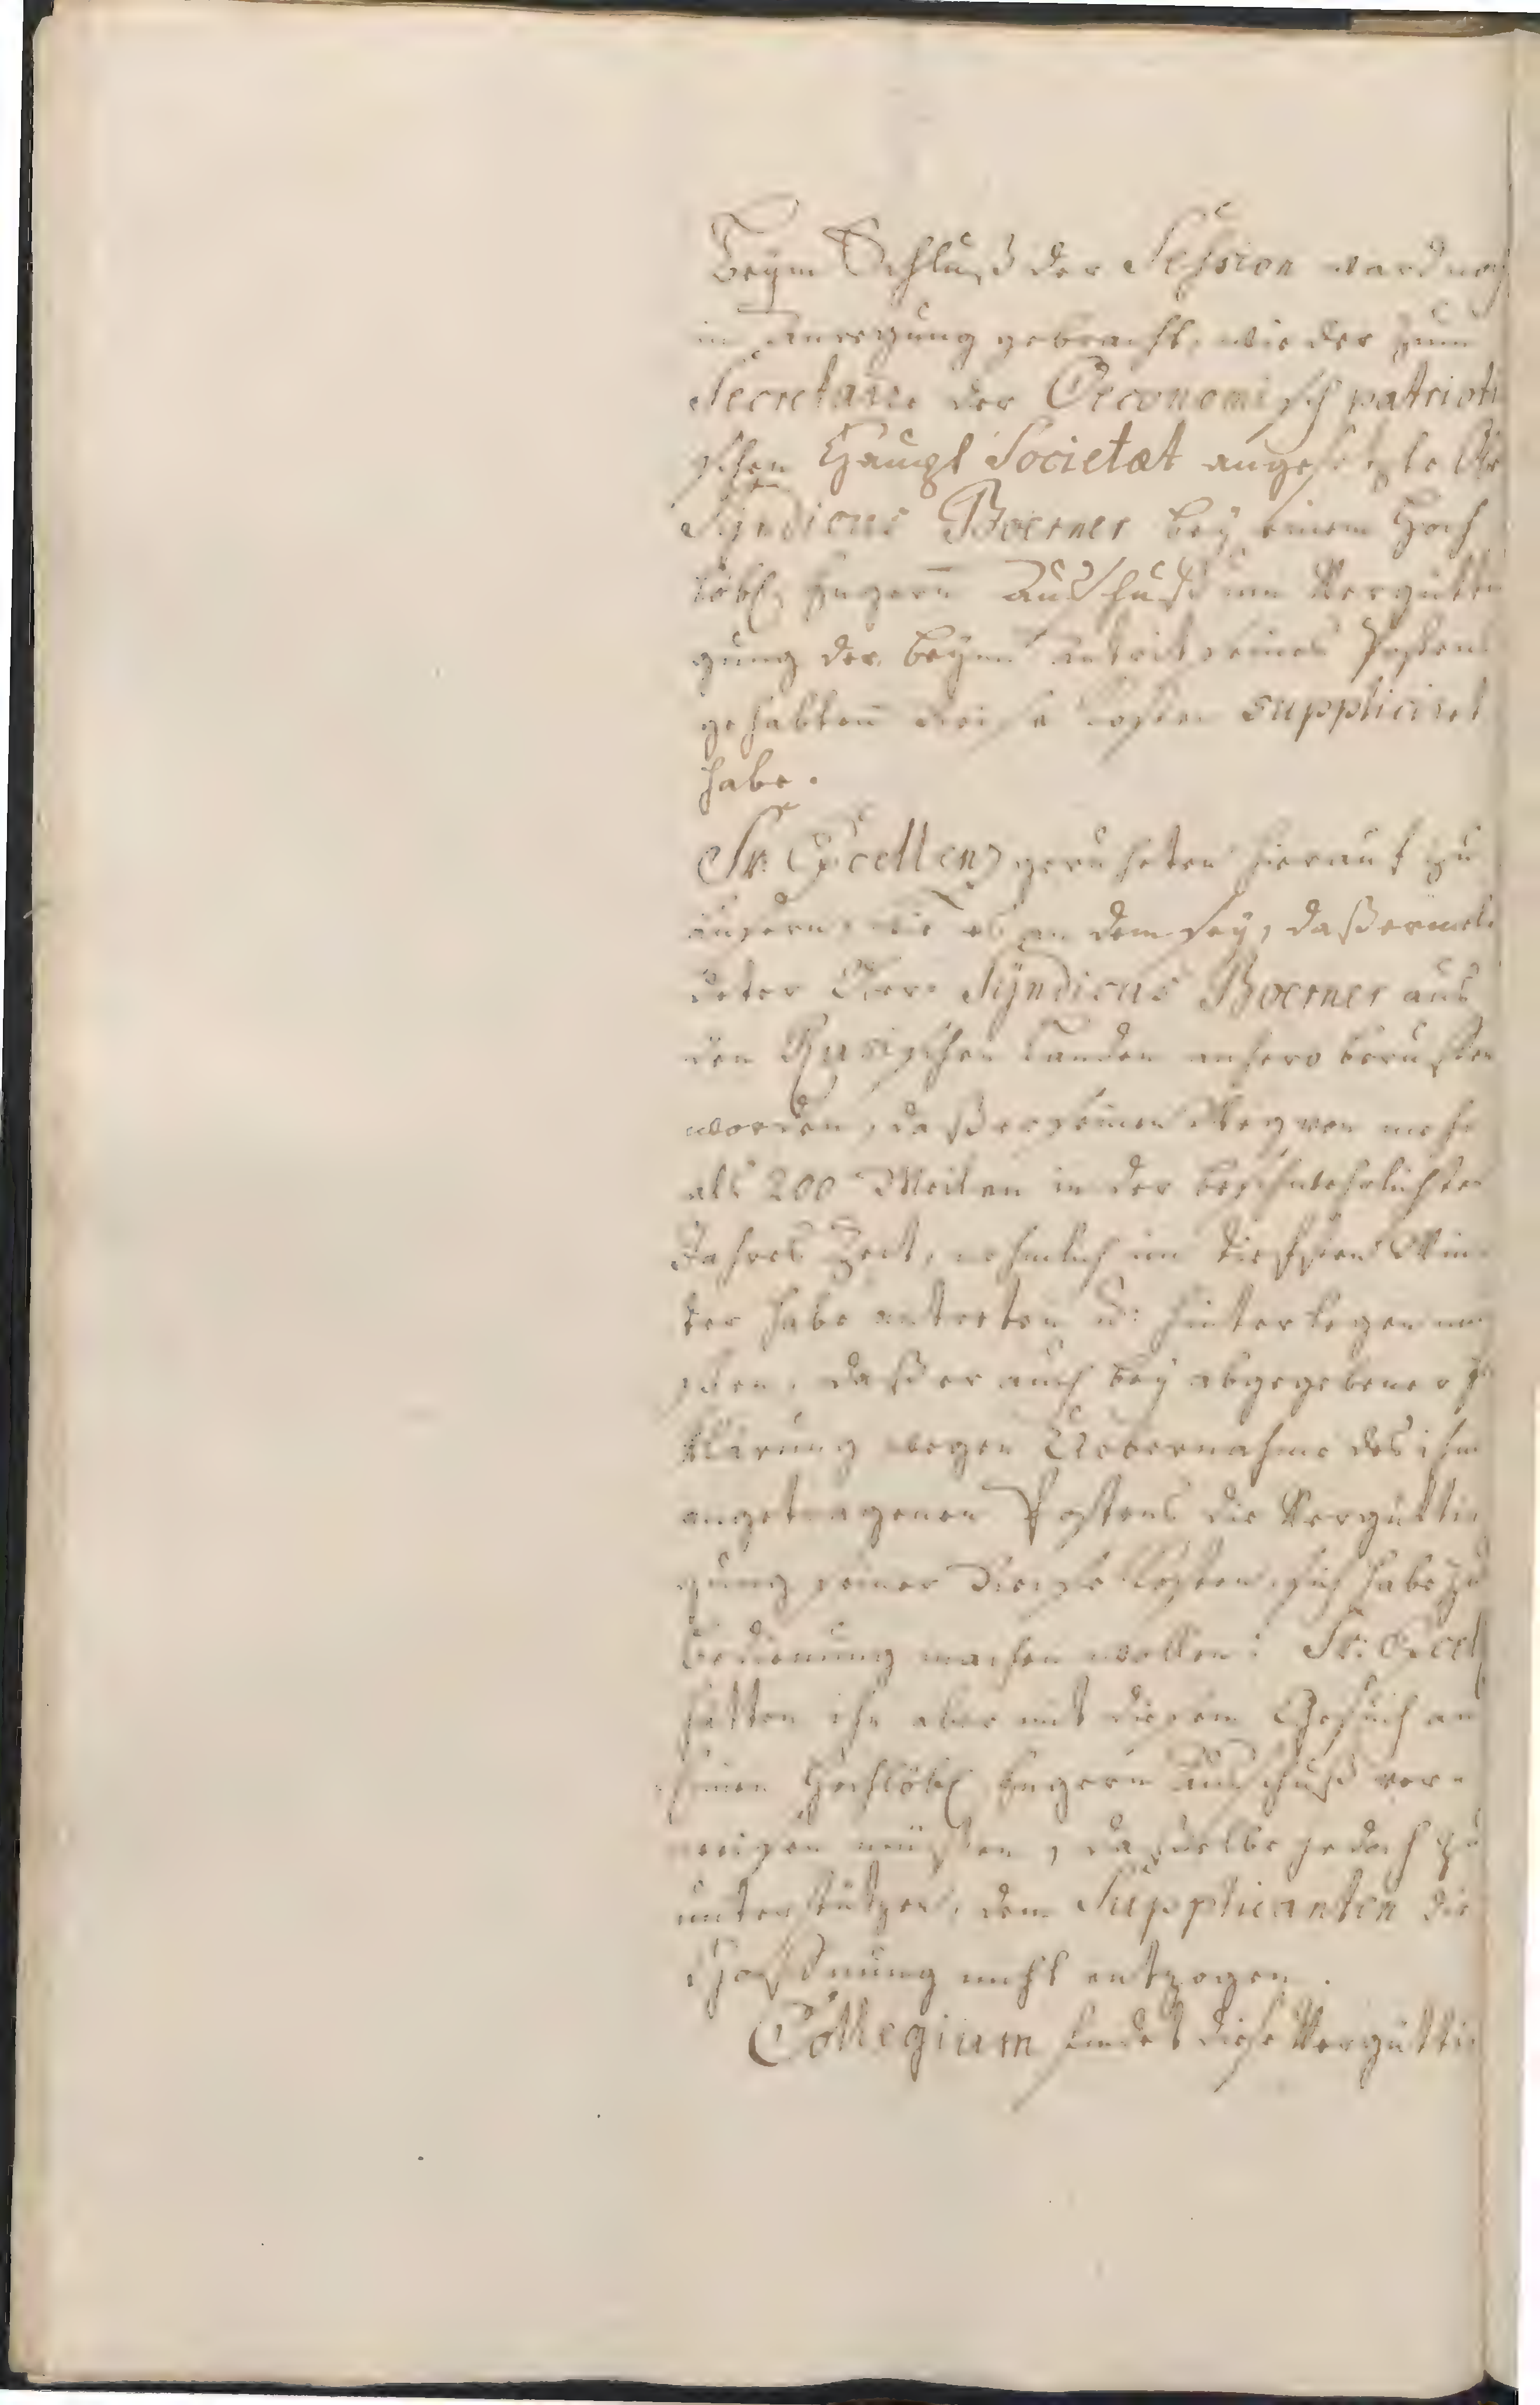 Beym Schluß der Session ward noch
in Anregung gebracht, wie der zum
Secretaire der Oeconomisch patrioti
schen Haupt Societæt angesetzte
Syndicus Boerner bey einem Hoch
löbl. Engern Ausschuß um Vergütti
gung der beym Antrit seines Postens
gehabten Reise Kosten supplicirt
habe.
Sr. Excellenz geruheten hierauf zu
äußern, wie es an dem sey, daß ermel
deter Herr Syndicus Boerner aus
den Rusischen Landen anhero beruffen
worden, daß er seinen Weg von mehr
als 200 Meilen in der beschwehrlichsten
Jahres Zeit, nehmlich im tieffsten Win
ter habe antreten u: hinterlegen müs
sen, daß er auch bey abgegebener Er
klärung wegen Uebernahme des ihm
angetragenen Postens die Vergütti
gung seiner Reise Kosten sich habe zur
Bedienung machen wollen: Sr. Excell
hätten ihn aber mit diesem Gesuch an
Einen Hochlöbl Engern Ausschuß ver-
weisen müssen, dasselbe jedoch zu
unterstützen, dem Supplicanten die
Hoffnung nicht entzogen.
Collegium findet diese Vergütti